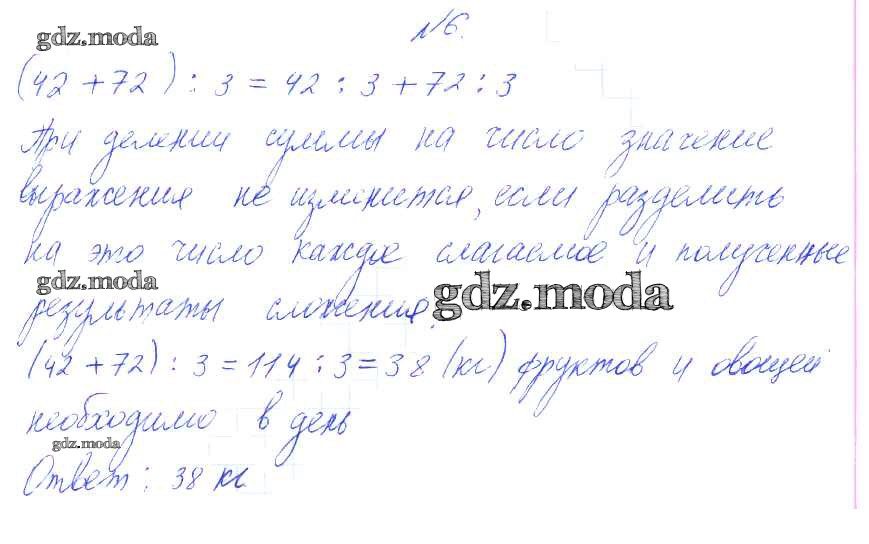 №6.
gdz.moda
(42+72) : 3 = 42 : 3 + 72 : 3
При делении суммы на число значение
выражения не изменится, если разделить
на это число каждое слагаемое и полученные
gdz.moda
gdz.moda
результаты сложения.
(42+72) : 3 = 114 : 3 = 38 (кг) фруктов и овощей
необходимо в день
gdz.moda
Ответ: 38 кг